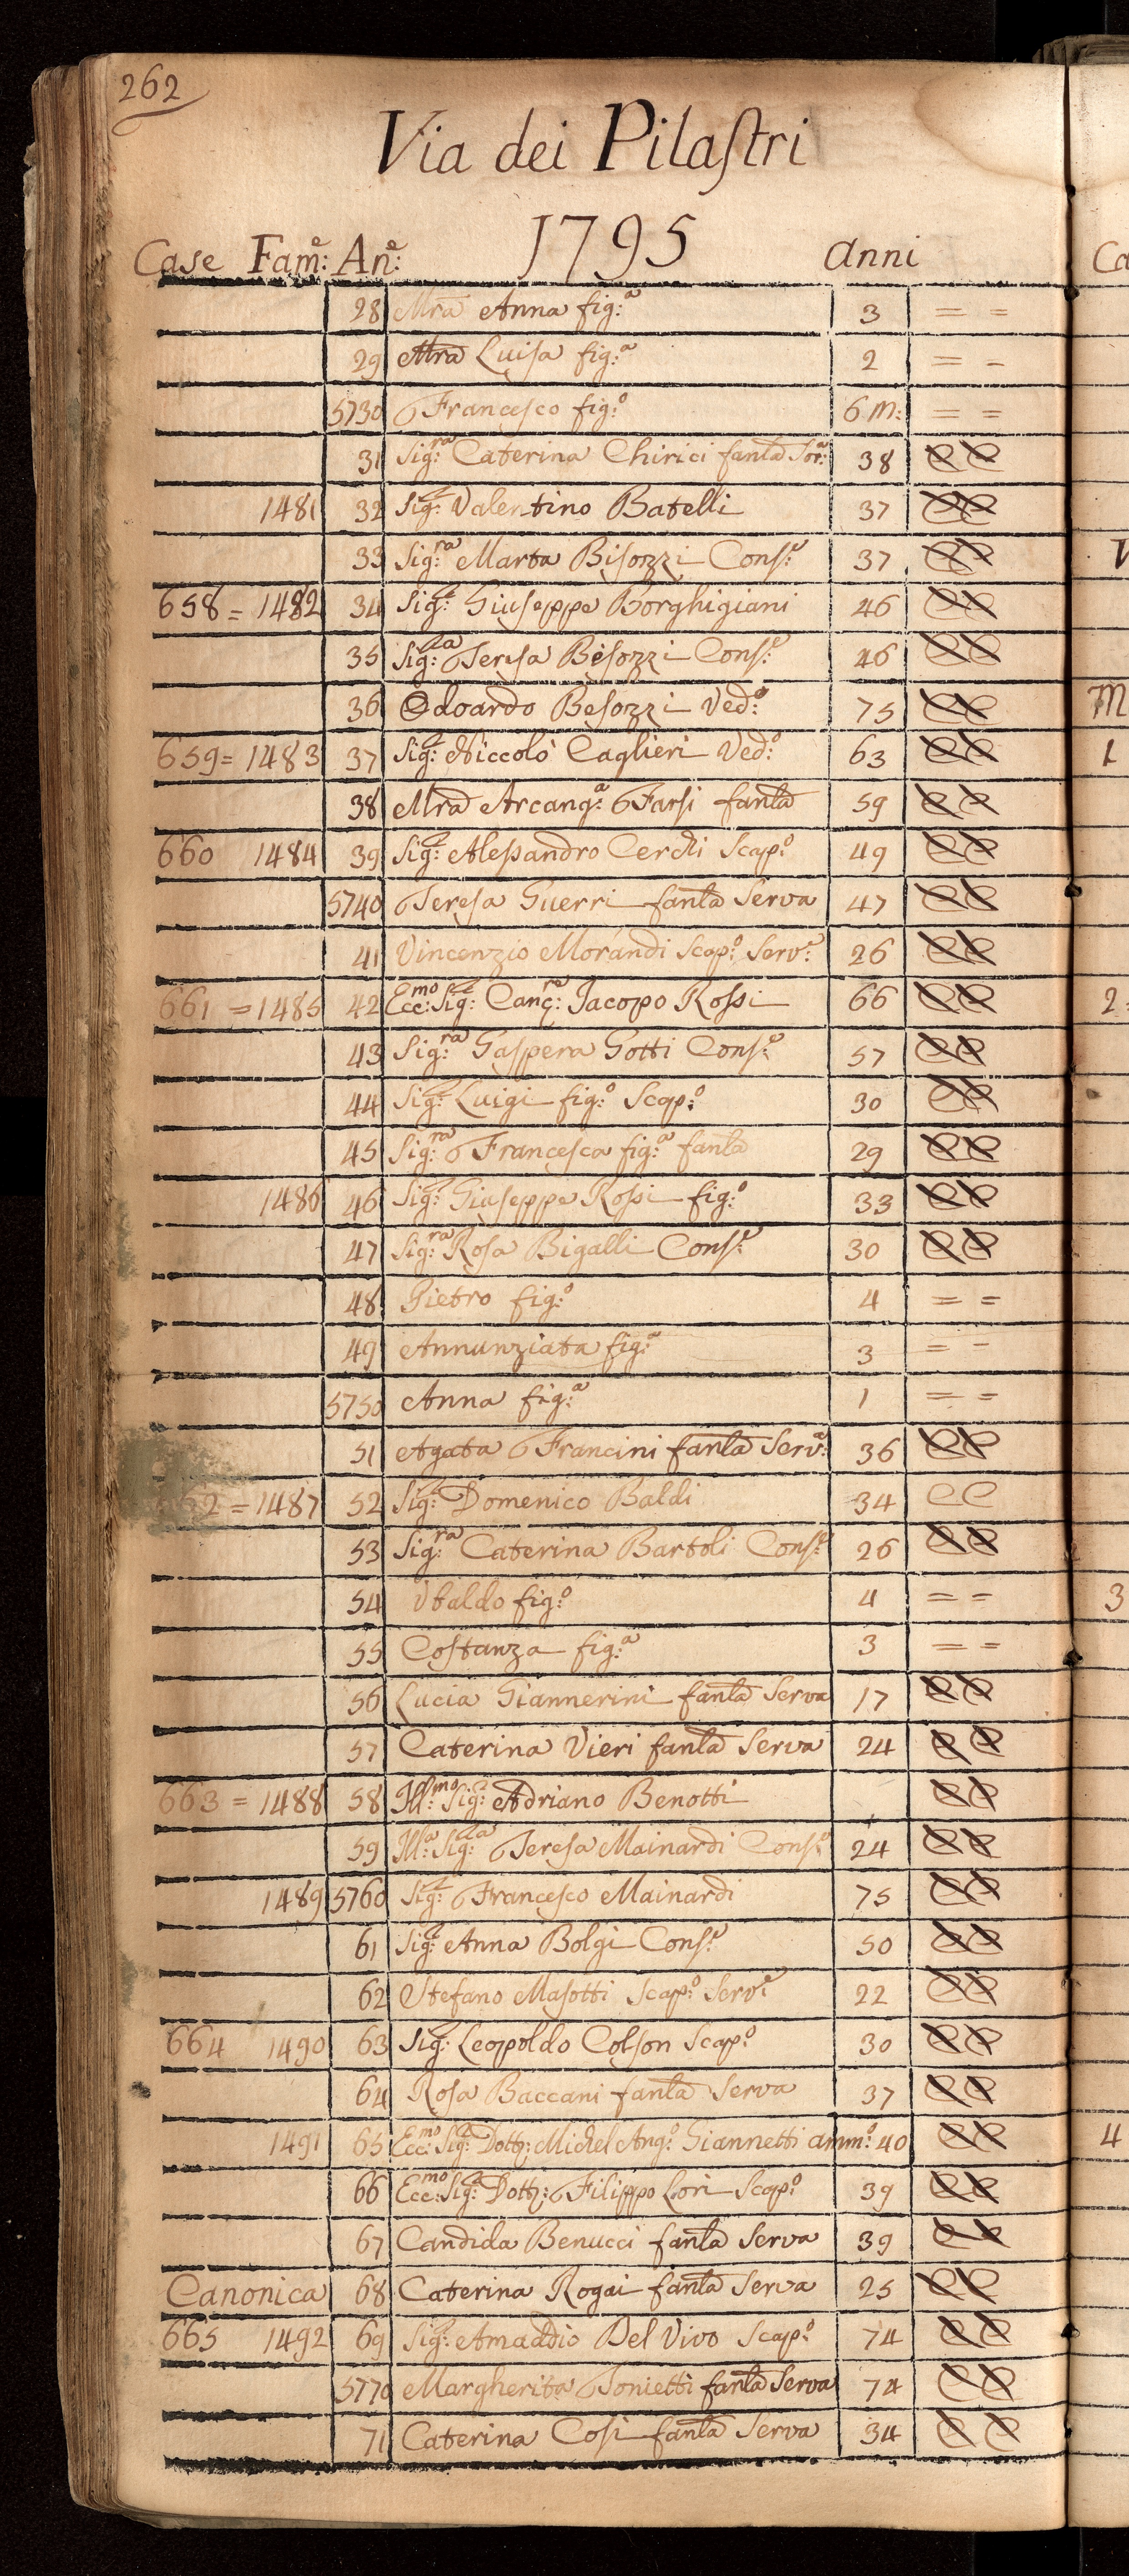 262
Via dei Pilastri
1795
Case Fam:e An:e anni
28 Mra Anna fig:a 3 = =
29 Mra Luisa fig:a 2 = -
5730 Francesco fig:o 6 m: = =
31 Sig:ra Caterina Chirici fanla Sor:a 38 C C
1481 32 Sig:r Valentino Batelli 37 C C
33 Sig:ra Marta Bisozzi Cons:e 37 C C
658 = 1482 34 Sig:r Giuseppe Borghigiani 46 C C
35 Sig:ra Teresa Besozzi Cons:e 46 C C
36 Odoardo Besozzi Ved:o 75 C C
659 = 1483 37 Sig:r Niccolò Caglieri Ved:o 63 C C
38 Mra Arcang:a Farsi fanla 59 C C
660 1484 39 Sig:r Alessandro Cerchi Scap:o 49 C C
5740 Teresa Guerri fanla Serva 47 C C
41 Vincenzio Morandi Scap:o Serv:e 26 C C
661 = 1485 42 Ecc:mo Sig:r Canc:re Jacopo Rossi 66 C C
43 Sig:ra Gaspera Gotti Cons:e 57 C C
44 Sig:r Luigi fig:o Scap:o 30 C C
45 Sig:ra Francesca fig:a fanla 29 C C
1486 46 Sig:r Giuseppe Rossi fig:o 33 C C
47 Sig:ra Rosa Bigalli Cons:e 30 C C
48 Pietro fig:o 4 = =
49 Annunziata fig:a 3 = -
5750 Anna fig:a 1 = =
51 Agata Francini fanla Serv:a 36 C C
2 = 1487 52 Sig:r Domenico Baldi 34 C C
53 Sig:ra Caterina Bartoli Cons:e 26 C C
54 Vbaldo fig:o 4 = =
55 Costanza fig:a 3 = =
56 Lucia Giannerini fanla Serva 17 C C
57 Caterina Vieri fanla Serva 24 C C
663 = 1488 58 Ill:mo Sig:r Adriano Benotti C C
59 Ill:a Sig:ra Teresa Mainardi Cons:e 24 C C
1489 5760 Sig:r Francesco Mainardi 75 C C
61 Sig:ra Anna Bolgi Cons:e 50 C C
62 Stefano Masotti Scap:o Serv:e 22 C C
664 1490 63 Sig:r Leopoldo Colson Scap:o 30 C C
64 Rosa Baccani fanla Serva 37 C C
1491 65 Ecc:mo Sig:r Dott:r Michel Ang:o Giannetti amm:o 40 C C
66 Ecc:mo Sig:r Dott:r Filippo Lori Scap:o 39 C C
67 Candida Benucci fanla Serva 39 C C
Canonica 68 Caterina Rogai fanla Serva 25 C C
665 1492 69 Sig:r Amaddio Del Vivo Scap:o 74 C C
5770 Margherita Tonietti fanla Serva 74 C C
71 Caterina Cosi fanla Serva 34 C C